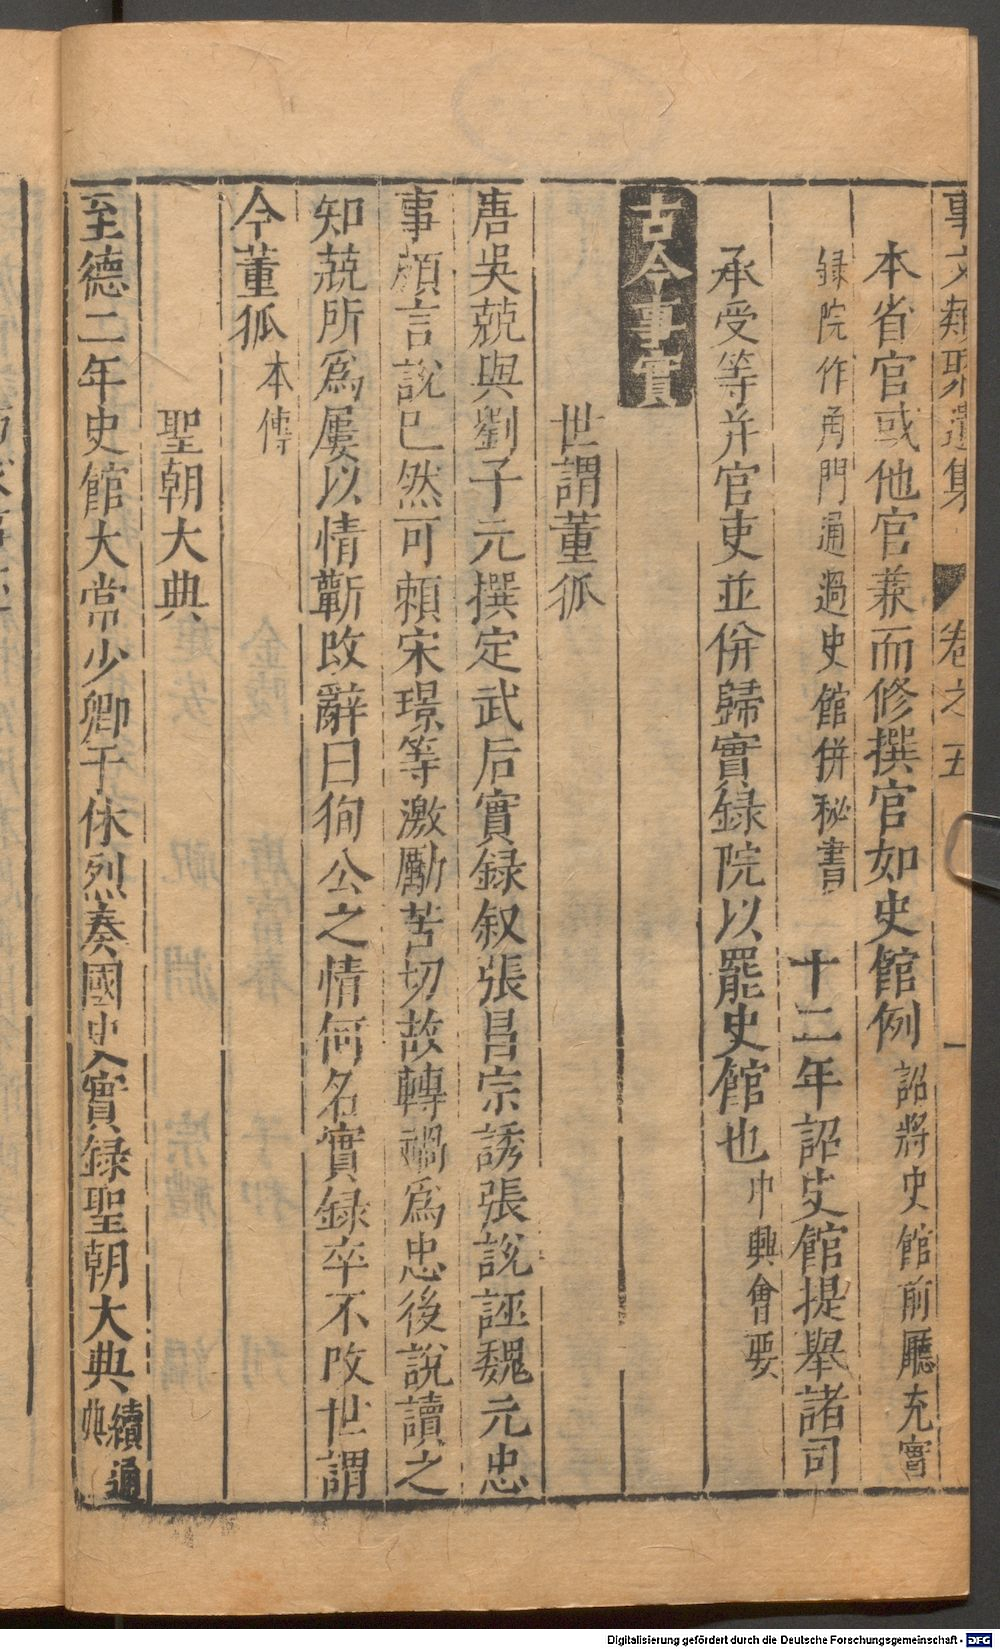 事文類聚遺集 卷之五 一
本省官或他官兼而修撰官如史館例 詔將史館前廳充實
錄院作角門通過史館併秘書 十二年詔史館提舉諸司
承受等并官吏並併歸實録院以罷史館也 中興會要
古今事實
世謂董狐
唐吳兢與劉子元撰定武后實録叙張昌宗誘張說誣魏元忠
事頗言說已然可賴宋璟等激勵苦切故轉禍爲忠後說讀之
知兢所爲屢以情蘄改辭曰徇公之情何名實録卒不改世謂
今董狐 本傳
聖朝大典
至德二年史館大常少卿于休烈奏國史實録聖朝大典 續通典
Digitalisierung gefördert durch die Deutsche Forschungsgemeinschaft - DFG